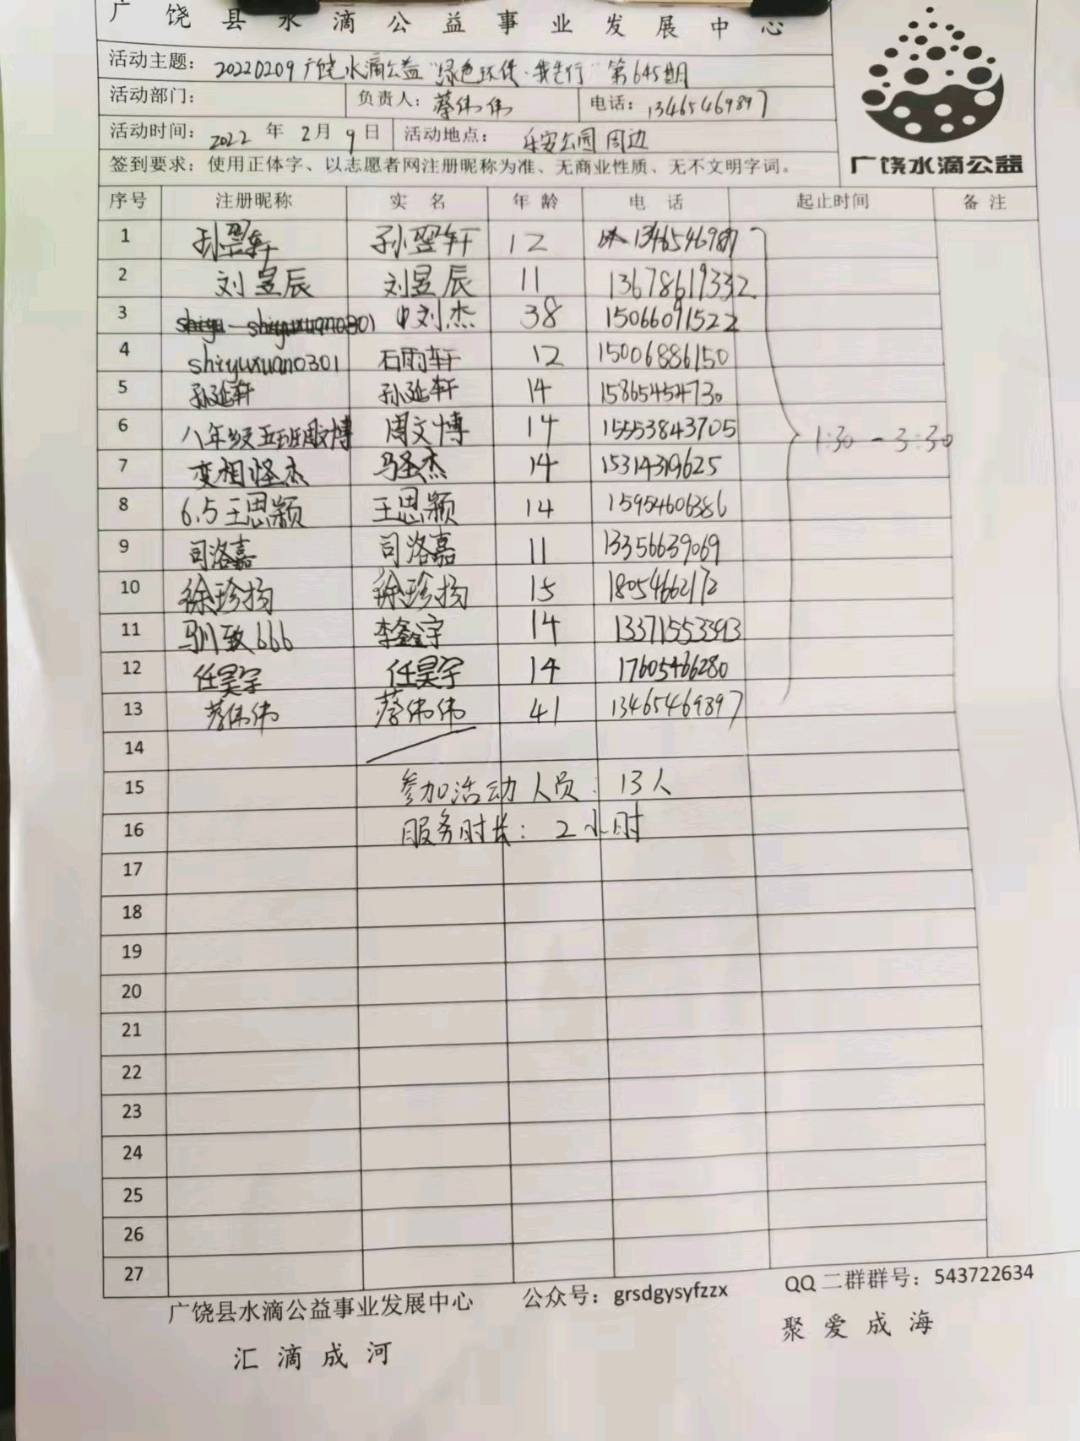 广饶县水滴公益事业发展中心
活动主题：20220209广饶水滴公益“绿色环保·我先行”第645期
活动部门： 负责人：蔡伟伟 电话：13465469897
活动时间：2022年2月9日 活动地点：乐安公园周边
签到要求：使用正体字、以志愿者网注册昵称为准、无商业性质、无不文明字词。
广饶水滴公益
序号 注册昵称 实名 年龄 电话 起止时间 备注
1 孙翌轩 孙翌轩 12
2 刘昱辰 刘昱辰 11 13678619332
3 刘杰 38 15066091522
4 shiyuxuan0301 石雨轩 12 15006886150
5 孙延轩 孙延轩 14 15865454730
6 八年级五班周文博 周文博 14 15553843705
7 变相怪杰 马圣杰 14 15314319625
8 6.5王思颖 王思颖 14 15954606386
1:30-3:30
9 司洛嘉 司洛嘉 11 13356639069
10 徐珍扬 徐珍扬 15 18054662172
11 驯致666 李鑫宇 14 13371553393
12 任昊宇 任昊宇 14 17605466280
13 蔡伟伟 蔡伟伟 41 13465469897
14
15 参加活动人员：13人
16 服务时长：2小时
17
18
19
20
21
22
23
24
25
26
27
广饶县水滴公益事业发展中心 公众号：grsdgysyfzzx QQ二群群号：543722634
汇滴成河 聚爱成海